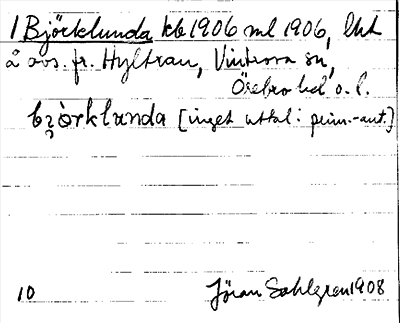 1 Björklunda kb 1906 ml 1906, lht
å avs. fr. Hyltran, Vintrosa sn,
Örebro hd o. l.
bjòrklunda [inget uttal: prim.-ant.]
10 Jöran Sahlgren 1908